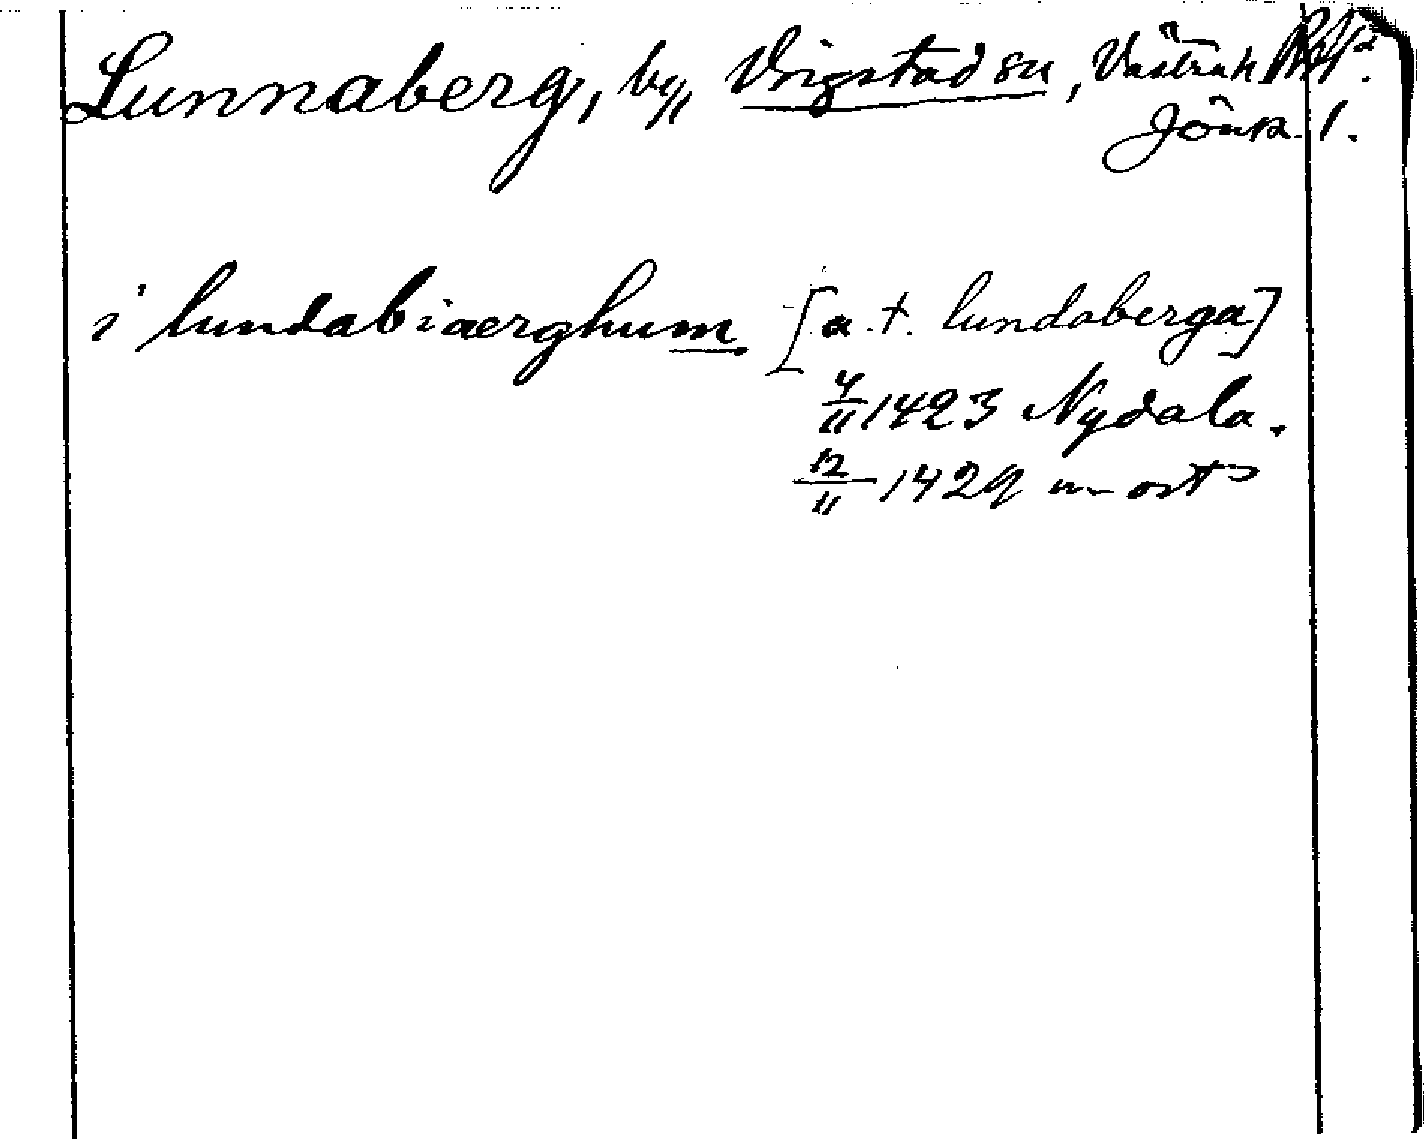 Lunnaberg, by, Vrigstad sn, Västra h
Jönk. l.
i lundabiaerghum [a.t. lundaberga]
4/11 1423 Nydala.
12/11 1429 u ort